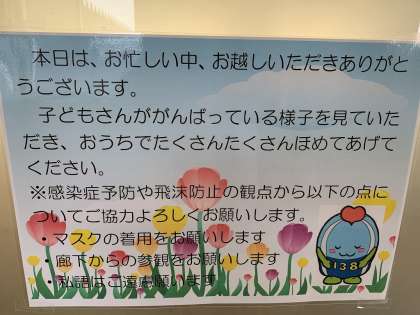 本日は、お忙しい中、お越しいただきありがと
うございます。
子どもさんががんばっている様子を見ていた
だき、おうちでたくさんたくさんほめてあげて
ください。
※感染症予防や飛沫防止の観点から以下の点に
ついてご協力よろしくお願いします。
・マスクの着用をお願いします
・廊下からの参観をお願いします
・私語はご遠慮願います
138